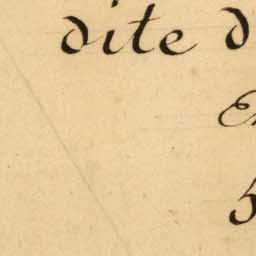 dite d
E
5